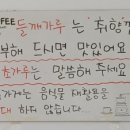 FFEE
들깨가루 는 "취향껏
부해 드시면 맛있어요
초가루는 말씀해 주세요
가게는 음식물 재활용을
대 하지 않습니다